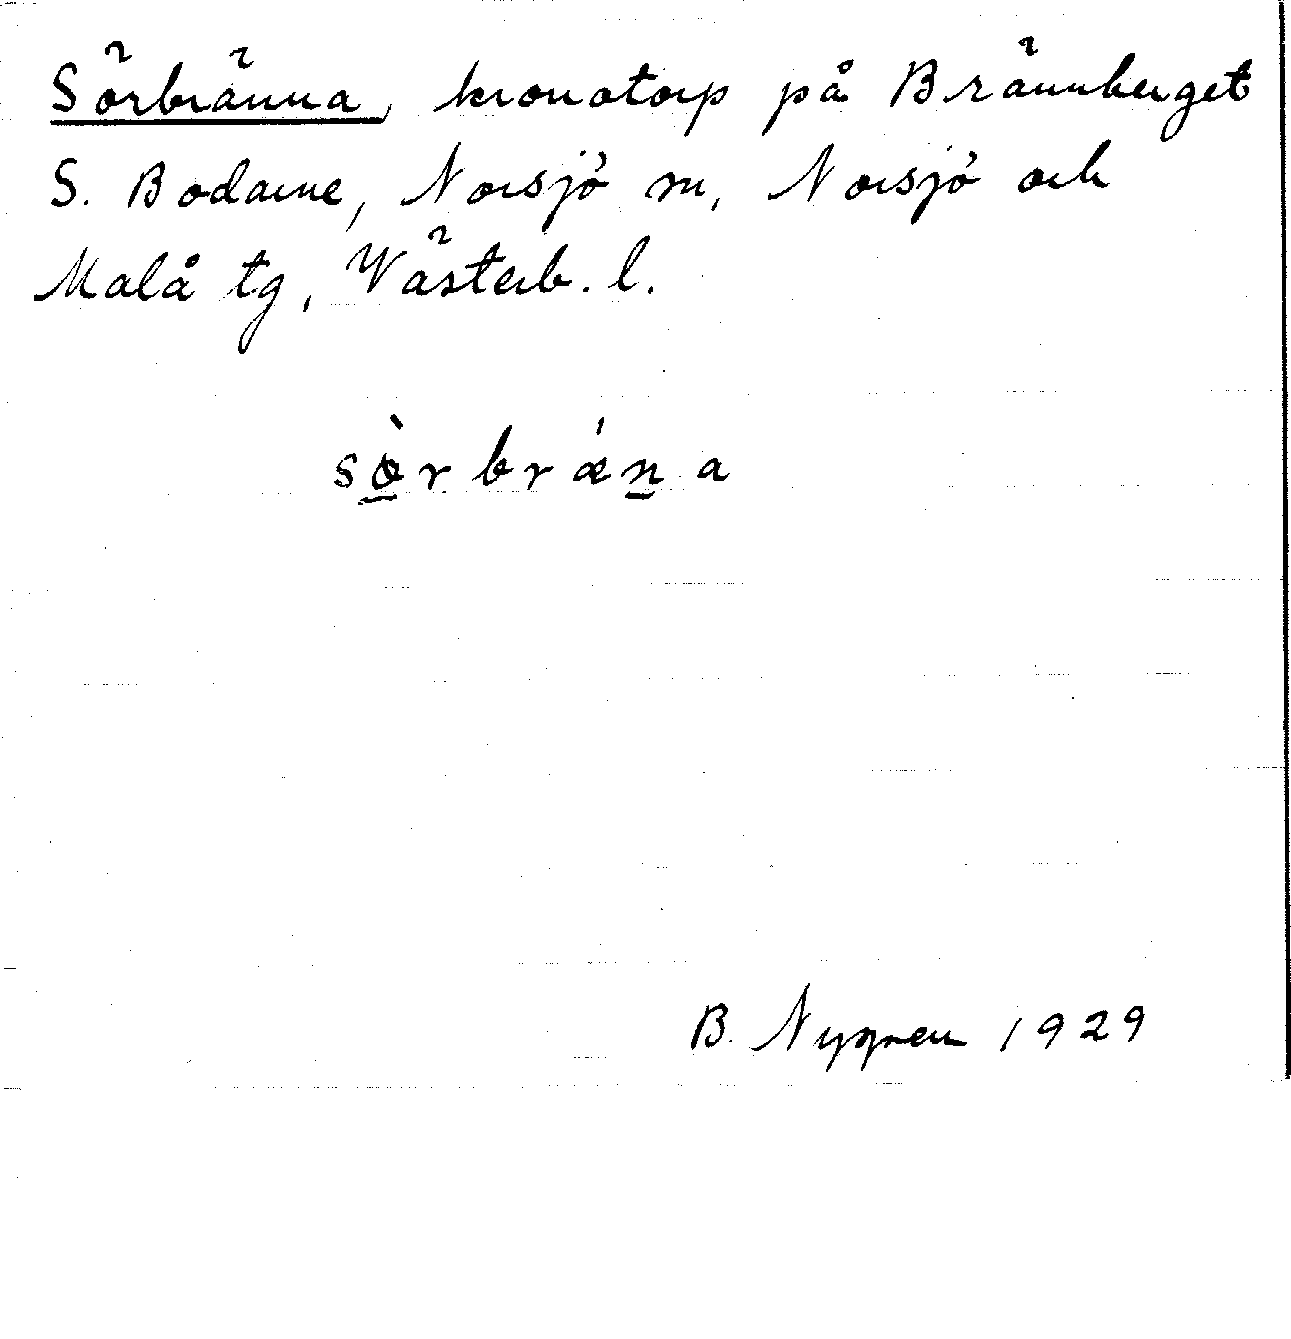 Sörbränna, kronotorp på Brännberget
S. Bodarne, Norsjö sn, Norsjö och
Malå tg, Västerb. l.
sö̀rbrǽna
B. Nygren 1929